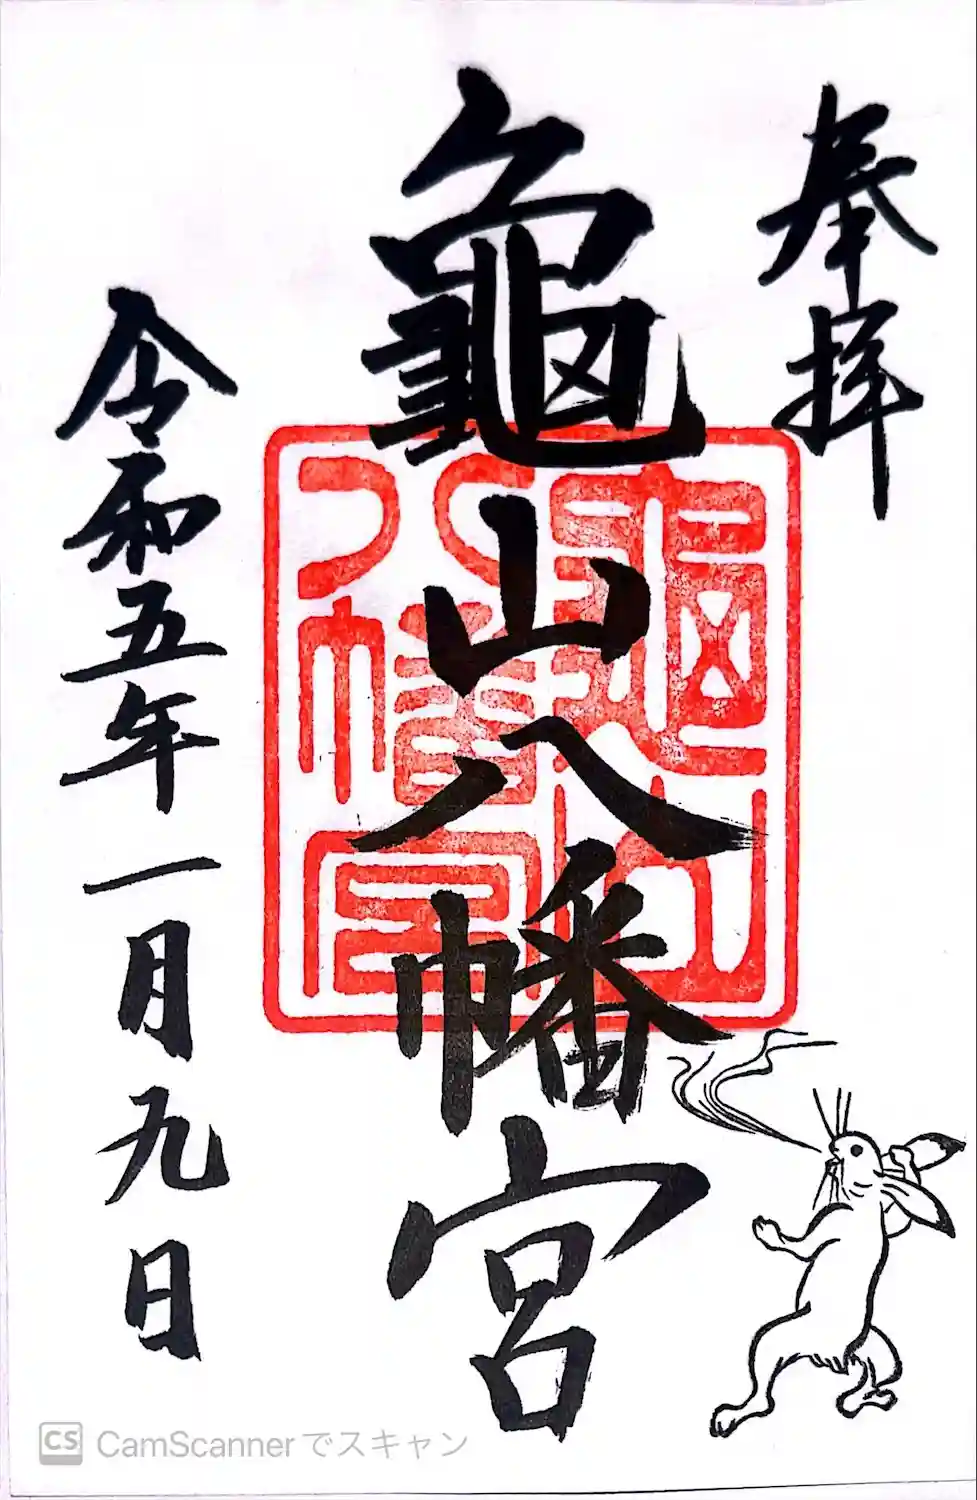 奉拝
龜山八幡宮
龜山
八幡宮
令和五年一月九日
CS CamScannerでスキャン